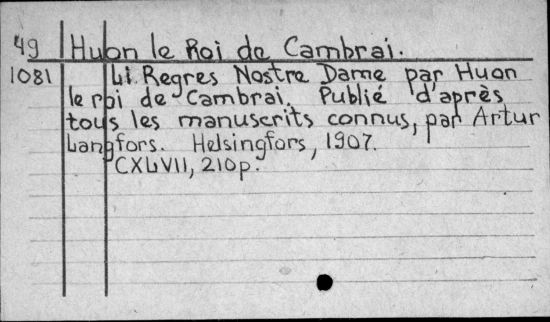 49 Huon le Roi de Cambrai.
1081 Li Regres Nostre Dame par Huon
le roi de Cambrai. Publié d'après
tous les manuscrits connus, par Artur
Langfors. Helsingfors, 1907.
CXLVII, 210p.